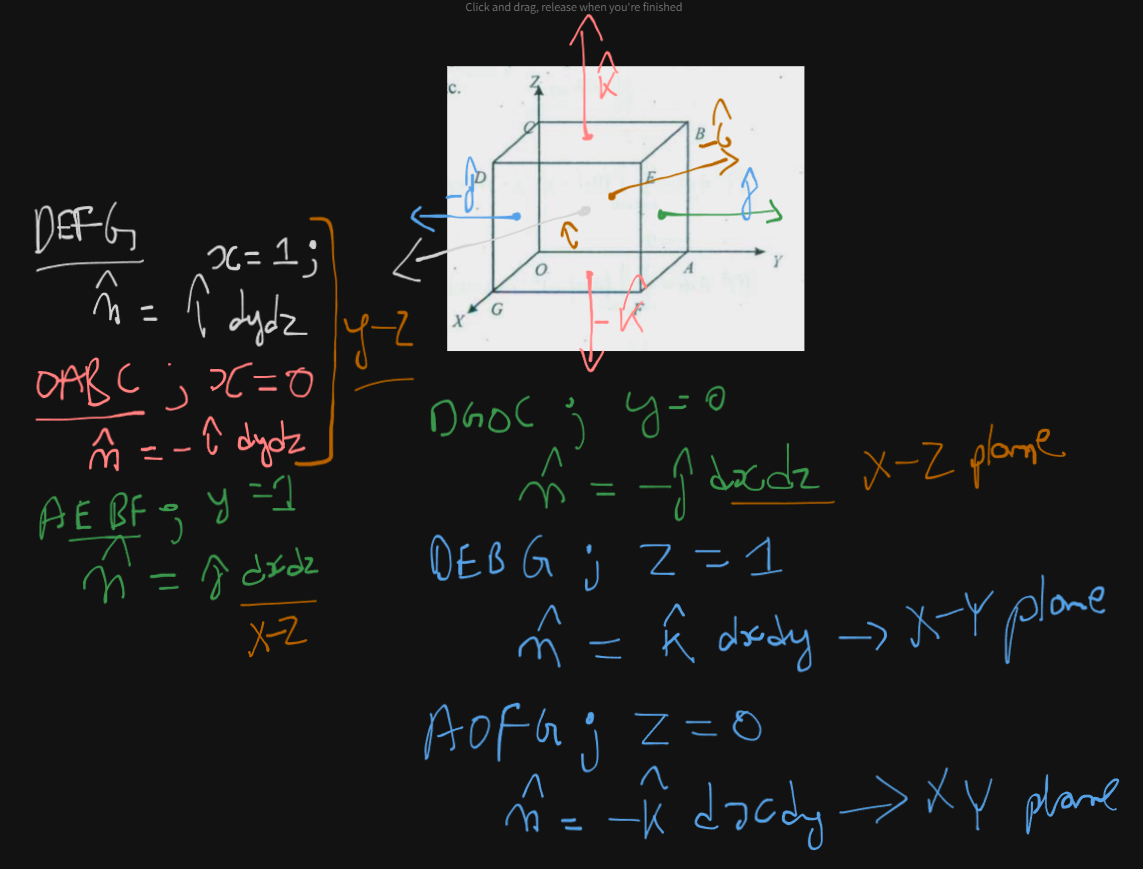 Click and drag, release when you're finished
c.
Z
k̂
C
B
-î
D
E
-ĵ
ĵ
î
O
A
Y
X
G
F
-k̂
DEFG
x=1;
n̂ = î dydz
OABC ; x=0
n̂ = -î dydz
y-z
AEBF ; y=1
n̂ = ĵ dxdz
x-z
DGOC ; y=0
n̂ = -ĵ dxdz x-z plane
DEBG ; z=1
n̂ = k̂ dxdy → x-y plane
AOFG ; z=0
n̂ = -k̂ dxdy → xy plane